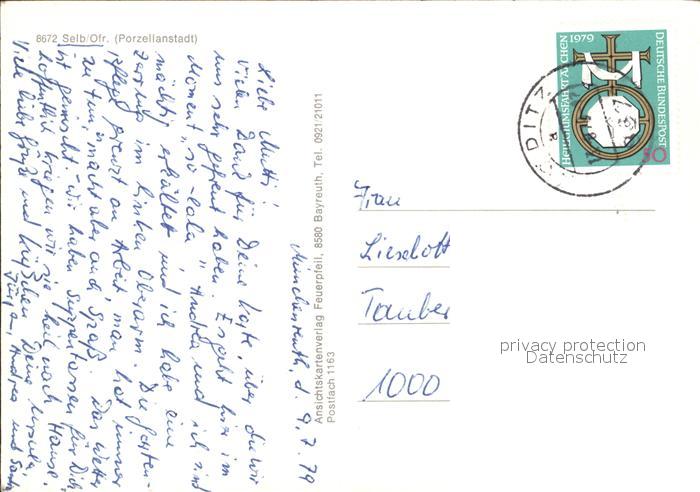 8672 Selb/Ofr. (Porzellanstadt)
Münchenreuth, d. 9.7.79
Liebe Mutti!
Vielen Dank für Deine Karte, über die wir
uns sehr gefreut haben. Es geht hier im
Moment „so-lala". Andrea und ich sind
mächtig erkältet und ich habe eine
Zerrung im linken Oberarm. Die Garten-
pflege grenzt an Arbeit, man hat immer
zu tun, macht aber auch Spaß. Das Wetter
ist gemischt. Wir haben Suppentassen für Dich,
hoffentlich kriegen wir sie heil nach Hause.
Viele liebe Grüße und Küßchen Deine Ursula,
Andrea und
Ansichtskartenverlag Feuerpfeil, 8580 Bayreuth, Tel. 0921/21011
Postfach 1163
HEILIGTUMSFAHRT AACHEN 1979
DEUTSCHE BUNDESPOST
50
Frau
Lieselott
Tauber
1000
privacy protection
Datenschutz